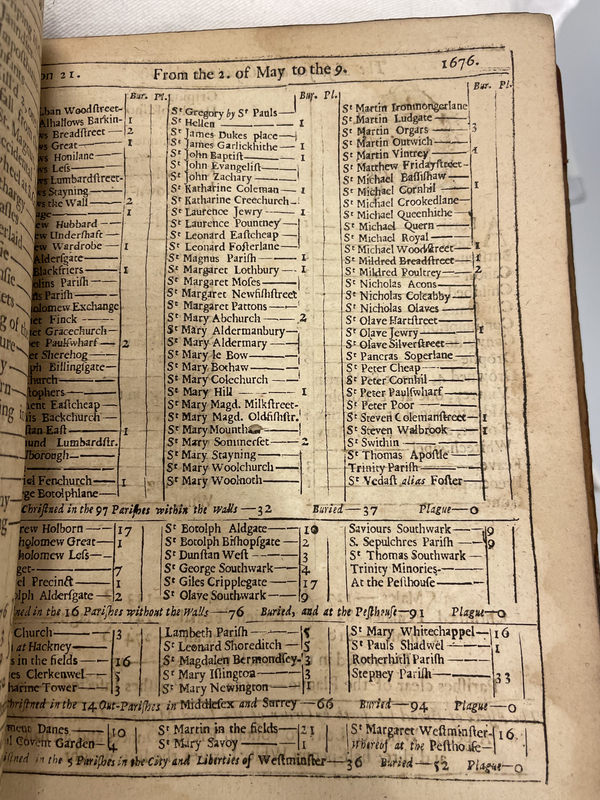 on 21.
From the 2. of May to the 9.
1676.
Bur. Pl.
Bur. Pl.
Bur. Pl.
ban Woodſtreet-
Alhallows Barkin- 1
ws Breadſtreet — 2
ws Great — 1
ws Honilane
ws Leſs
ws Lumbardſtreet-
ws Stayning
ws the Wall — 2
age — 1
ew Hubbard
ew Underſhaft
ew Wardrobe — 1
Alderſgate
Blackfriers — 1
olins Pariſh
ds Pariſh
olomew Exchange
et Finck
et Gracechurch
et Paulſwharf — 2
er Sherehog
ph Billingſgate
hurch
tophers
ent Eaſtcheap
is Backchurch
ſtan Eaſt — 1
und Lumbardſtr.
borough
iel Fenchurch — 1
ge Botolphlane
Sᵗ Gregory by Sᵗ Pauls
Sᵗ Hellen — 1
Sᵗ James Dukes place
Sᵗ James Garlickhithe — 1
Sᵗ John Baptiſt — 1
Sᵗ John Evangeliſt
Sᵗ John Zachary
Sᵗ Katharine Coleman — 1
Sᵗ Katharine Creechurch
Sᵗ Laurence Jewry — 1
Sᵗ Laurence Pountney
Sᵗ Leonard Eaſtcheap
Sᵗ Leonard Foſterlane
Sᵗ Magnus Pariſh — 1
Sᵗ Margaret Lothbury — 1
Sᵗ Margaret Moſes
Sᵗ Margaret Newfiſhſtreet
Sᵗ Margaret Pattons
Sᵗ Mary Abchurch — 2
Sᵗ Mary Aldermanbury
Sᵗ Mary Aldermary
Sᵗ Mary le Bow
Sᵗ Mary Bothaw
Sᵗ Mary Colechurch
Sᵗ Mary Hill — 1
Sᵗ Mary Magd. Milkſtreet
Sᵗ Mary Magd. Oldfiſhſtr.
Sᵗ Mary Mounth
Sᵗ Mary Sommerſet — 2
Sᵗ Mary Stayning
Sᵗ Mary Woolchurch
Sᵗ Mary Woolnoth
Sᵗ Martin Ironmongerlane
Sᵗ Martin Ludgate
Sᵗ Martin Orgars — 3
Sᵗ Martin Outwich
Sᵗ Martin Vintrey — 1
Sᵗ Matthew Fridayſtreet
Sᵗ Michael Baſſiſhaw
Sᵗ Michael Cornhil — 1
Sᵗ Michael Crookedlane
Sᵗ Michael Queenhithe
Sᵗ Michael Quern
Sᵗ Michael Royal
Sᵗ Michael Woodſtreet — 1
Sᵗ Mildred Breadſtreet — 1
Sᵗ Mildred Poultrey — 2
Sᵗ Nicholas Acons
Sᵗ Nicholas Coleabby
Sᵗ Nicholas Olaves
Sᵗ Olave Hartſtreet
Sᵗ Olave Jewry — 1
Sᵗ Olave Silverſtreet
Sᵗ Pancras Soperlane
Sᵗ Peter Cheap
Sᵗ Peter Cornhil
Sᵗ Peter Paulſwharf
Sᵗ Peter Poor
Sᵗ Steven Colemanſtreet — 1
Sᵗ Steven Walbrook — 1
Sᵗ Swithin
Sᵗ Thomas Apoſtle
Trinity Pariſh
Sᵗ Vedaſt alias Foſter
Chriſtned in the 97 Pariſhes within the Walls — 32 Buried — 37 Plague — 0
rew Holborn — 17
holomew Great — 1
holomew Leſs
get — 7
el Precinct — 1
olph Alderſgate — 2
Sᵗ Botolph Aldgate — 10
Sᵗ Botolph Biſhopſgate — 2
Sᵗ Dunſtan Weſt — 3
Sᵗ George Southwark — 4
Sᵗ Giles Cripplegate — 17
Sᵗ Olave Southwark — 9
Saviours Southwark — 9
S. Sepulchres Pariſh — 9
Sᵗ Thomas Southwark
Trinity Minories
At the Peſthouſe
ned in the 16 Pariſhes without the Walls — 76 Buried, and at the Peſthouſe — 91 Plague — 0
Church — 3
at Hackney
s in the fields — 16
es Clerkenwel — 5
harine Tower — 3
Lambeth Pariſh — 5
Sᵗ Leonard Shoreditch — 5
Sᵗ Magdalen Bermondſey — 3
Sᵗ Mary Iſlington — 3
Sᵗ Mary Newington — 1
Sᵗ Mary Whitechappel — 16
Sᵗ Pauls Shadwel — 1
Rotherhith Pariſh
Stepney Pariſh — 33
hriſtned in the 14 Out-Pariſhes in Middleſex and Surrey — 66 Buried — 94 Plague — 0
ment Danes — 10
l Covent Garden — 4
Sᵗ Martin in the fields — 21
Sᵗ Mary Savoy — 1
Sᵗ Margaret Weſtminſter — 16
whereof at the Peſthouſe
iſtned in the 5 Pariſhes in the City and Liberties of Weſtminſter — 36 Buried — 52 Plague — 0